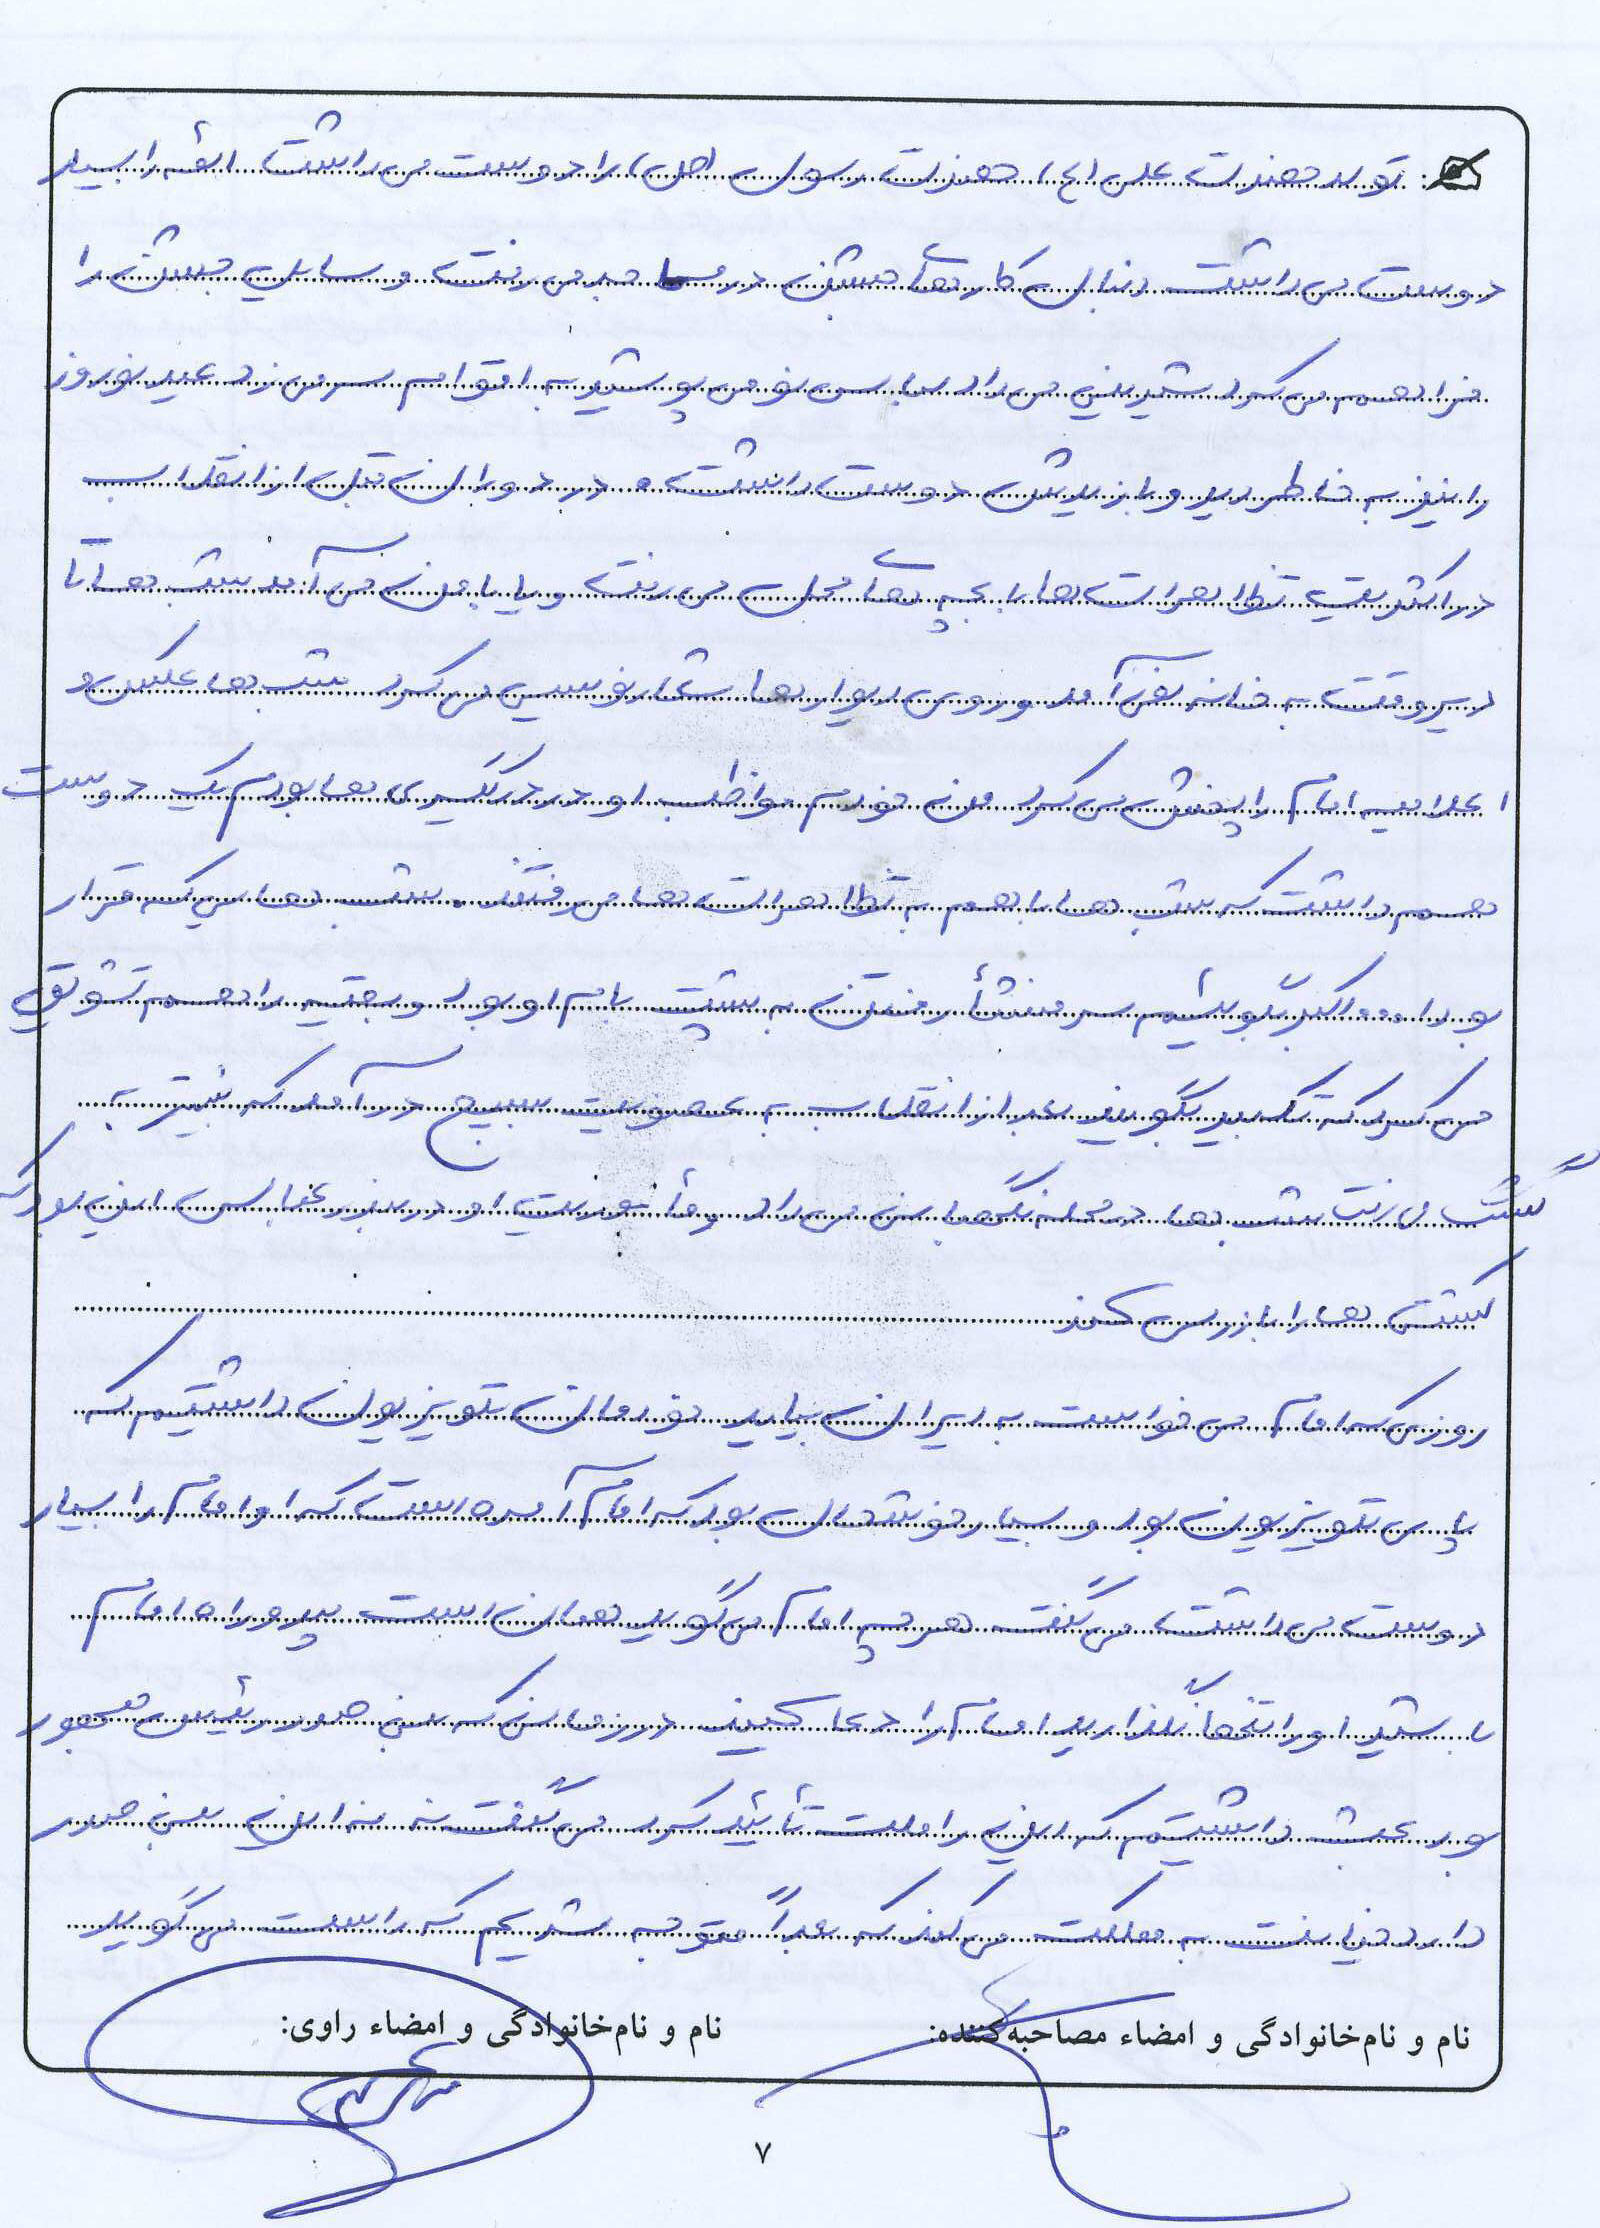 تولد حضرت علی (ع)، حضرت رسول (ص) را دوست می داشت. ائمه را بسیار
دوست می داشت دنبال کارهای جشن در مساجد می رفت و وسایل جشن را
فراهم می کرد شیرینی می داد لباس نو می پوشید به اقوام سر می زد عید نوروز
را نیز به خاطر دید و بازدیدش دوست داشت و در دوران قبل از انقلاب
در اکثریت تظاهرات ها با بچه های محل می رفت و یا با من می آمد شب ها تا
دیر وقت به خانه نمی آمد و روی دیوارها شعارنویسی می کرد شب ها عکس و
اعلامیه امام را پخش می کرد من خودم مواظب او در درگیری ها بودم یک دوست
هم داشت که شب ها با هم به تظاهرات ها می رفتند. شب هایی که قرار
بود ا... اکبر بگوئیم سر منشأ رفتن به پشت بام او بود و بقیه را هم تشویق
می کرد که تکبیر بگویند بعد از انقلاب به عضویت بسیج در آمد که بیشتر به
گشت می رفت شب ها در محله نگهبانی می داد و مأموریت او در بندر عباس این بود که
کشتی ها را بازرسی کند
روزی که امام می خواست به ایران بیاید خودمان تلویزیون داشتیم که
پای تلویزیون بود و بسیار خوشحال بود که امام آمده است که او امام را بسیار
دوست می داشت می گفت هر چه امام می گوید همان است پیرو راه امام
باشید او را تنها نگذارید امام را دعا کنید در زمانی که بنی صدر رئیس جمهور
بود بحث داشتیم که این را ملت تأئید کرد می گفت نه نه این بنی صدر
دارد خیانت به مملکت می کند که بعداً متوجه شدیم که راست می گوید
نام و نام‌خانوادگی و امضاء مصاحبه‌کننده:
نام و نام‌خانوادگی و امضاء راوی:
۷